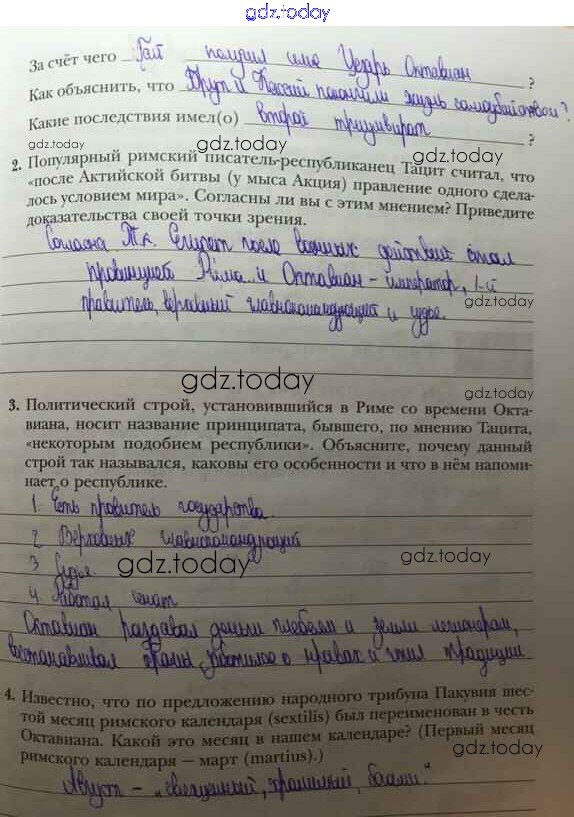 gdz.today
За счёт чего Гай получил имя Цезарь Октавиан ?
gdz.today
Как объяснить, что Брут и Кассий покончили жизнь самоубийством?
gdz.today
Какие последствия имел(о) второй триумвират ?
gdz.today
2. Популярный римский писатель-республиканец Тацит считал, что
«после Актийской битвы (у мыса Акция) правление одного сдела-
лось условием мира». Согласны ли вы с этим мнением? Приведите
доказательства своей точки зрения.
gdz.today
Согласна т.к. Египет после военных действий стал
провинцией Рима и Октавиан - император, 1-й
правитель, верховный главнокомандующий и судья.
gdz.today
gdz.today
gdz.today
3. Политический строй, установившийся в Риме со времени Окта-
виана, носит название принципата, бывшего, по мнению Тацита,
«некоторым подобием республики». Объясните, почему данный
строй так назывался, каковы его особенности и что в нём напоми-
нает о республике.
gdz.today
1. Есть правитель государства
2 Верховных главнокомандующий
3 Судья
gdz.today
gdz.today
4. Работал сенат
Октавиан раздавал деньги плебеям и земли легионерам,
восстанавливал храмы, заботился о нравах и чтил традиции
4. Известно, что по предложению народного трибуна Пакувия шес-
той месяц римского календаря (sextilis) был переименован в честь
Октавиана. Какой это месяц в нашем календаре? (Первый месяц
римского календаря — март (martius).)
gdz.today
Август - "священный, хранимый, богами"
gdz.today